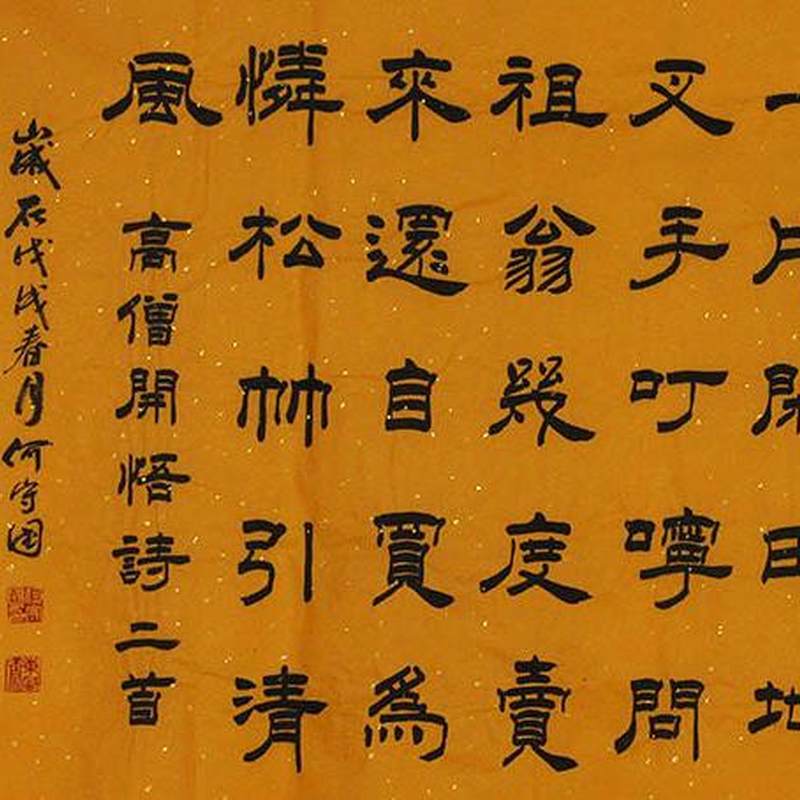 一片閑田地
叉手叮嚀問
祖翁幾度賣
來還自買爲
憐松竹引清
風 高僧開悟詩二首
歲在戊戌春月何守國